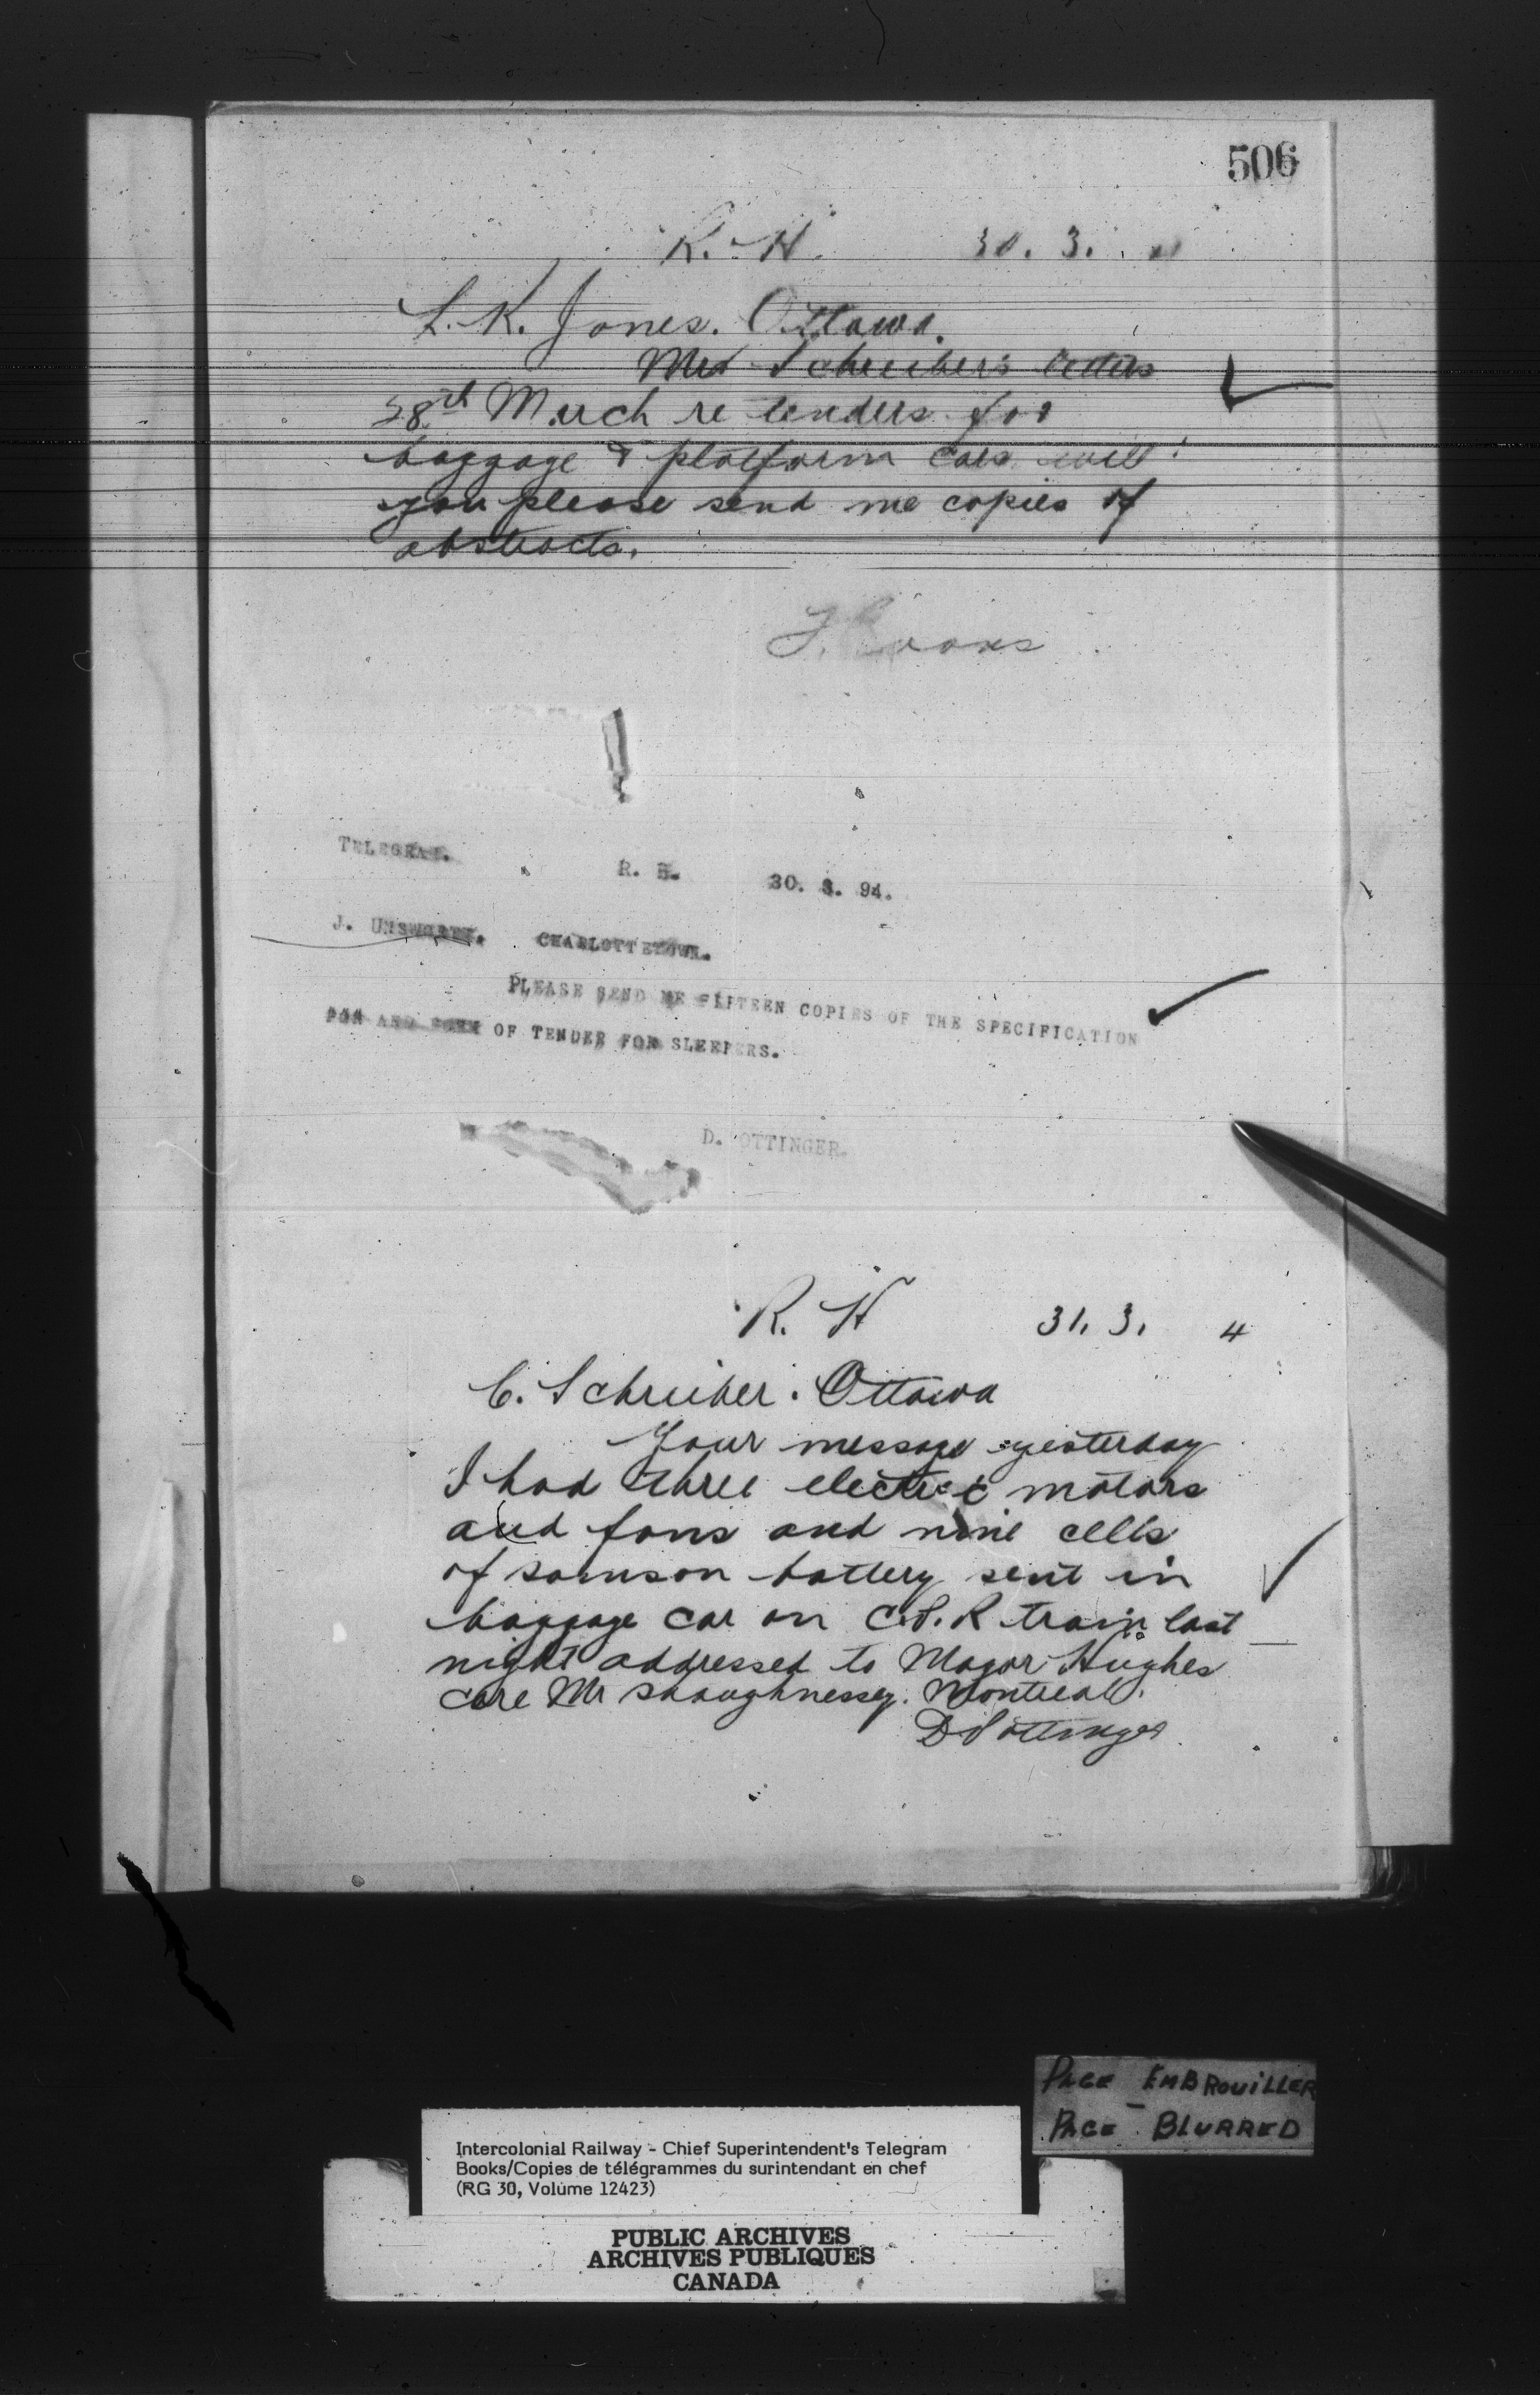 506
R. H. 30. 3.
L. K. Jones. Ottawa.
Mr Schreiber's letters
28th March re tenders for
baggage & platform cars will
you please send me copies of
abstracts.
TELEGRAM.
R. H. 30. 3. 94.
J. UNSWORTH. CHARLOTTETOWN.
PLEASE SEND ME FIFTEEN COPIES OF THE SPECIFICATION
FOR AND FORM OF TENDER FOR SLEEPERS.
D. POTTINGER.
R. H 31. 3. 4
C. Schreiber. Ottawa
Your message yesterday
I had three electric motors
and fans and nine cells
of samson battery sent in
baggage car on C.P.R train last
night addressed to Magor Hughes
care Mr Shaughnessy. Montreal.
D Pottinger
PAGE EMBROUILLER
PAGE BLURRED
Intercolonial Railway - Chief Superintendent's Telegram
Books/Copies de télégrammes du surintendant en chef
(RG 30, Volume 12423)
PUBLIC ARCHIVES
ARCHIVES PUBLIQUES
CANADA